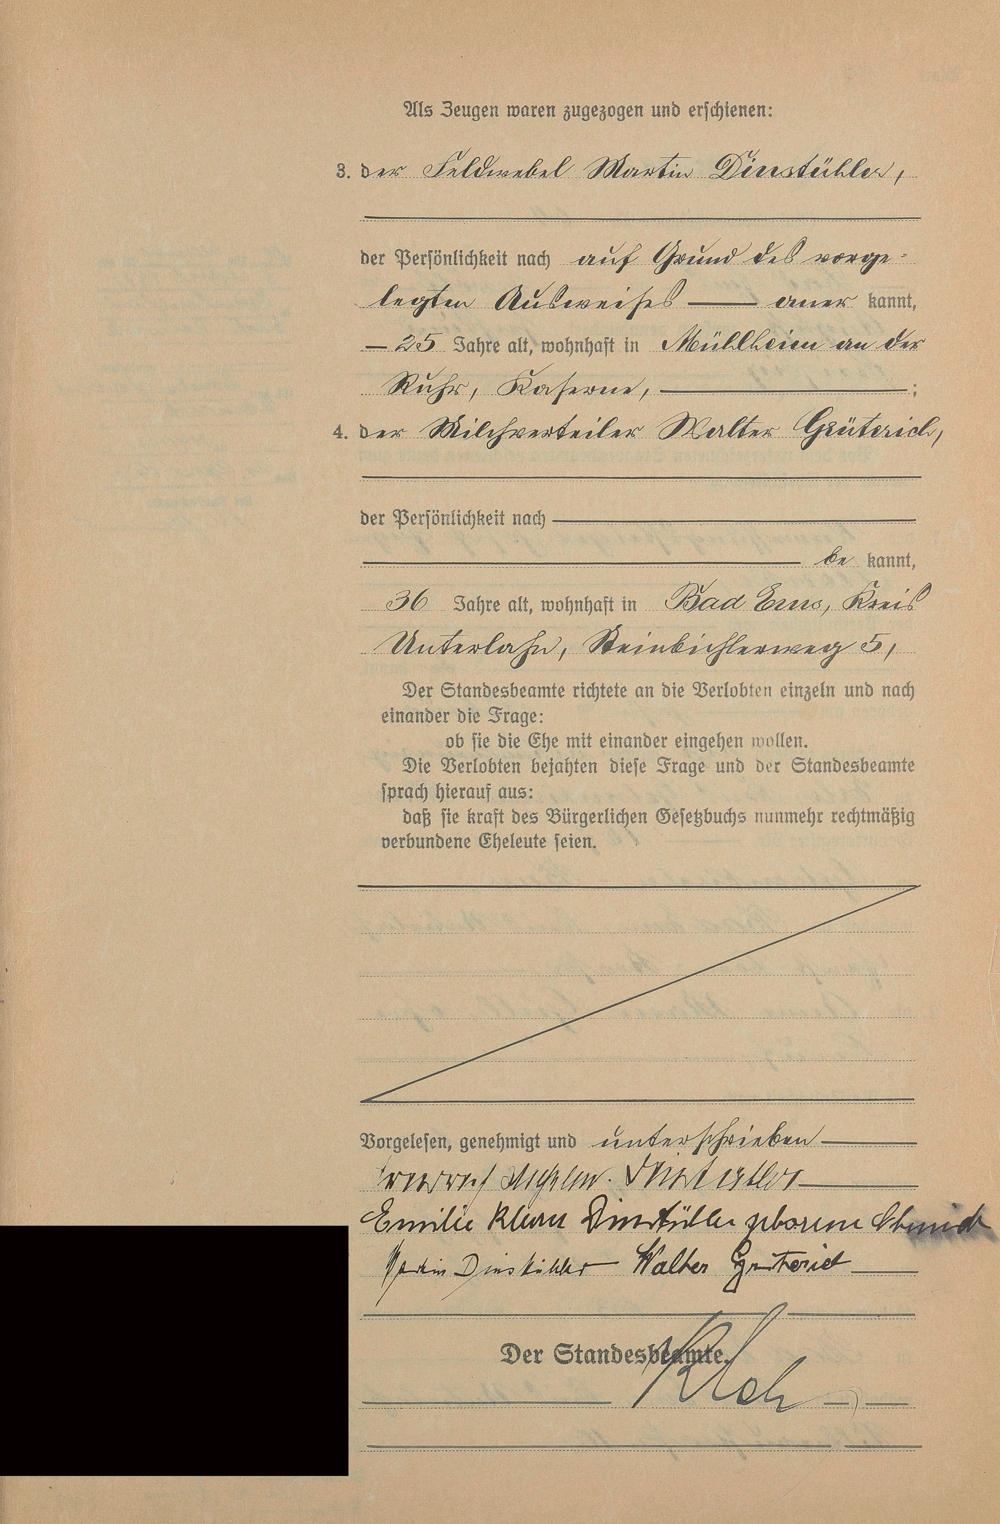 Als Zeugen waren zugezogen und erschienen:
3. der Feldwebel Martin Dinstühler,
der Persönlichkeit nach auf Grund des vorge-
legten Ausweises — aner kannt,
— 25 Jahre alt, wohnhaft in Müllheim an der
Ruhr, Kaserne, — ;
4. der Milchverteiler Walter Grüterich,
der Persönlichkeit nach —
— be kannt,
36 Jahre alt, wohnhaft in Bad Ems, Kreis
Unterlahn, Steinbichlerweg 5,
Der Standesbeamte richtete an die Verlobten einzeln und nach
einander die Frage:
ob sie die Ehe mit einander eingehen wollen.
Die Verlobten bejahten diese Frage und der Standesbeamte
sprach hierauf aus:
daß sie kraft des Bürgerlichen Gesetzbuchs nunmehr rechtmäßig
verbundene Eheleute seien.
Vorgelesen, genehmigt und unterschrieben —
Emilie Dinstühler geborene Schmidt
Martin Dinstühler — Walter Grüterich —
Der Standesbeamte.